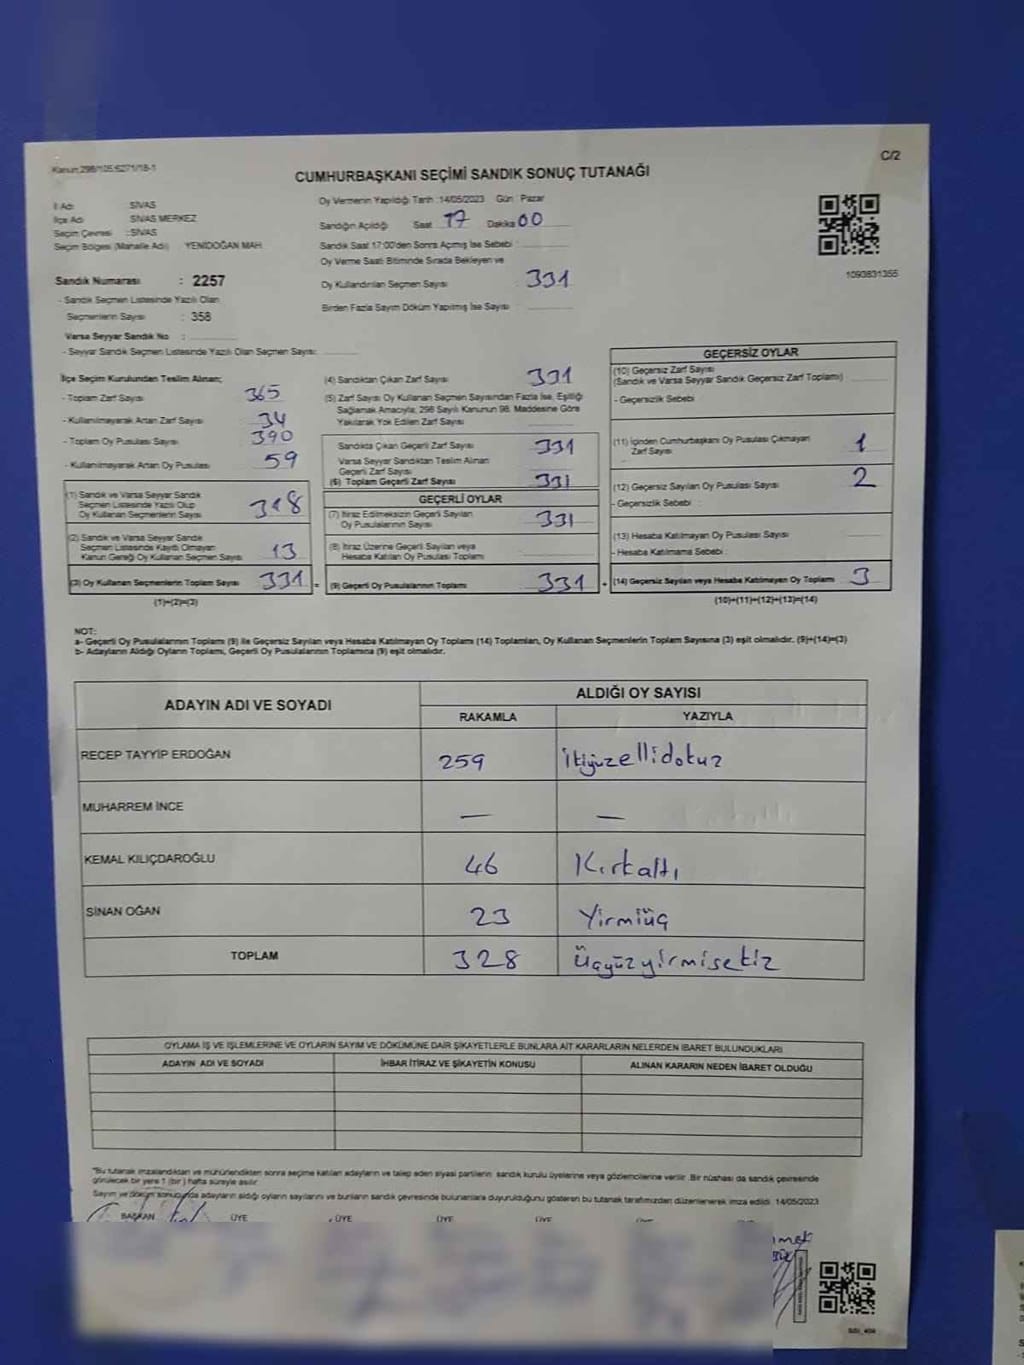 Kanun:298/105:6271/18-1
C/2
CUMHURBAŞKANI SEÇİMİ SANDIK SONUÇ TUTANAĞI
İl Adı : SİVAS
İlçe Adı : SİVAS MERKEZ
Seçim Çevresi : SİVAS
Seçim Bölgesi (Mahalle Adı) YENİDOĞAN MAH.
Sandık Numarası : 2257
- Sandık Seçmen Listesinde Yazılı Olan
Seçmenlerin Sayısı : 358
Varsa Seyyar Sandık No :
- Seyyar Sandık Seçmen Listesinde Yazılı Olan Seçmen Sayısı:
Oy Vermenin Yapıldığı Tarih :14/05/2023 Gün : Pazar
Sandığın Açıldığı Saat 17 Dakika 00
Sandık Saat 17:00'den Sonra Açmış İse Sebebi :
Oy Verme Saati Bitiminde Sırada Bekleyen ve
Oy Kullandırılan Seçmen Sayısı : 331
Birden Fazla Sayım Döküm Yapılmış İse Sayısı :
1093831355
İlçe Seçim Kurulundan Teslim Alınan;
- Toplam Zarf Sayısı : 365
- Kullanılmayarak Artan Zarf Sayısı : 34
- Toplam Oy Pusulası Sayısı : 390
- Kullanılmayarak Artan Oy Pusulası : 59
(1) Sandık ve Varsa Seyyar Sandık
Seçmen Listesinde Yazılı Olup
Oy Kullanan Seçmenlerin Sayısı 318
(2) Sandık ve Varsa Seyyar Sandık
Seçmen Listesinde Kayıtlı Olmayan
Kanun Gereği Oy Kullanan Seçmen Sayısı 13
(3) Oy Kullanan Seçmenlerin Toplam Sayısı 331 =
(1)+(2)=(3)
(4) Sandıktan Çıkan Zarf Sayısı 331
(5) Zarf Sayısı Oy Kullanan Seçmen Sayısından Fazla İse, Eşitliği
Sağlamak Amacıyla; 298 Sayılı Kanunun 98. Maddesine Göre
Yakılarak Yok Edilen Zarf Sayısı
Sandıkta Çıkan Geçerli Zarf Sayısı 331
Varsa Seyyar Sandıktan Teslim Alınan
Geçerli Zarf Sayısı
(6) Toplam Geçerli Zarf Sayısı 331
GEÇERLİ OYLAR
(7) İtiraz Edilmeksizin Geçerli Sayılan
Oy Pusulalarının Sayısı 331
(8) İtiraz Üzerine Geçerli Sayılan veya
Hesaba Katılan Oy Pusulası Toplamı
(9) Geçerli Oy Pusulalarının Toplamı 331 +
GEÇERSİZ OYLAR
(10) Geçersiz Zarf Sayısı
(Sandık ve Varsa Seyyar Sandık Geçersiz Zarf Toplamı)
- Geçersizlik Sebebi
(11) İçinden Cumhurbaşkanı Oy Pusulası Çıkmayan
Zarf Sayısı 1
(12) Geçersiz Sayılan Oy Pusulası Sayısı 2
- Geçersizlik Sebebi
(13) Hesaba Katılmayan Oy Pusulası Sayısı
- Hesaba Katılmama Sebebi
(14) Geçersiz Sayılan veya Hesaba Katılmayan Oy Toplamı 3
(10)+(11)+(12)+(13)=(14)
NOT:
a- Geçerli Oy Pusulalarının Toplamı (9) ile Geçersiz Sayılan veya Hesaba Katılmayan Oy Toplamı (14) Toplamları, Oy Kullanan Seçmenlerin Toplam Sayısına (3) eşit olmalıdır. (9)+(14)=(3)
b- Adayların Aldığı Oyların Toplamı, Geçerli Oy Pusulalarının Toplamına (9) eşit olmalıdır.
ADAYIN ADI VE SOYADI
ALDIĞI OY SAYISI
RAKAMLA YAZIYLA
RECEP TAYYİP ERDOĞAN 259 ikiyüzellidokuz
MUHARREM İNCE — —
KEMAL KILIÇDAROĞLU 46 Kırkaltı
SİNAN OĞAN 23 Yirmiüç
TOPLAM 328 Üçyüzyirmisekiz
OYLAMA İŞ VE İŞLEMLERİNE VE OYLARIN SAYIM VE DÖKÜMÜNE DAİR ŞİKAYETLERLE BUNLARA AİT KARARLARIN NELERDEN İBARET BULUNDUKLARI
ADAYIN ADI VE SOYADI İHBAR İTİRAZ VE ŞİKAYETİN KONUSU ALINAN KARARIN NEDEN İBARET OLDUĞU
"Bu tutanak imzalandıktan ve mühürlendikten sonra seçime katılan adayların ve talep eden siyasi partilerin sandık kurulu üyelerine veya gözlemcilerine verilir. Bir nüshası da sandık çevresinde
görülecek bir yere 1 (bir ) hafta süreyle asılır.
Sayım ve döküm sonucunda adayların aldığı oyların sayılarını ve bunların sandık çevresinde bulunanlara duyurulduğunu gösteren bu tutanak tarafımızdan düzenlenerek imza edildi. 14/05/2023
BAŞKAN ÜYE ÜYE ÜYE ÜYE ÜYE ÜYE